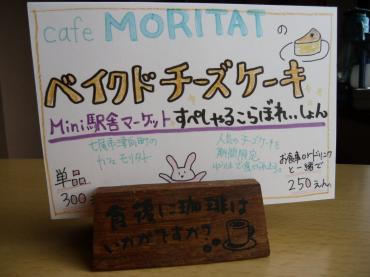 cafe MORITATの
ベイクドチーズケーキ
Mini駅舎マーケットすぺしゃるこらぼれ..しょん
七尾市
カフェモリタト
人気のチーズケーキを
期間限定
お食事orドリンク
と一緒で
250えん。
単品
300
食後に珈琲は
いかがですか?